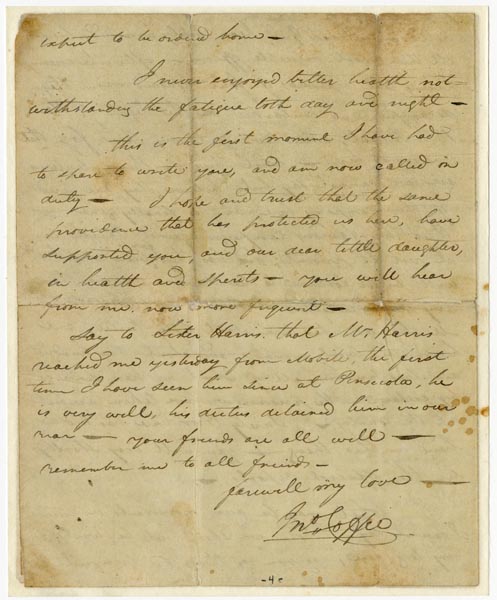 expect to be ordered home —
I never enjoyed better health not-
withstanding the fatigue both day and night —
this is the first moment I have had
to spare to write you, and am now called on
duty — I hope and trust that the same
providence that has protected us here, have
supported you, and our dear little daughter,
in health and sperits — you will hear
from me now more frequent —
say to Sister Harris that Mr. Harris
reached me yesterday from Mobile, the first
time I have seen him since at Penscola, he
is very well, his duties detained him in our
rear — your friends are all well —
remember me to all friends —
farewell my love —
Jno. Coffee
-4-